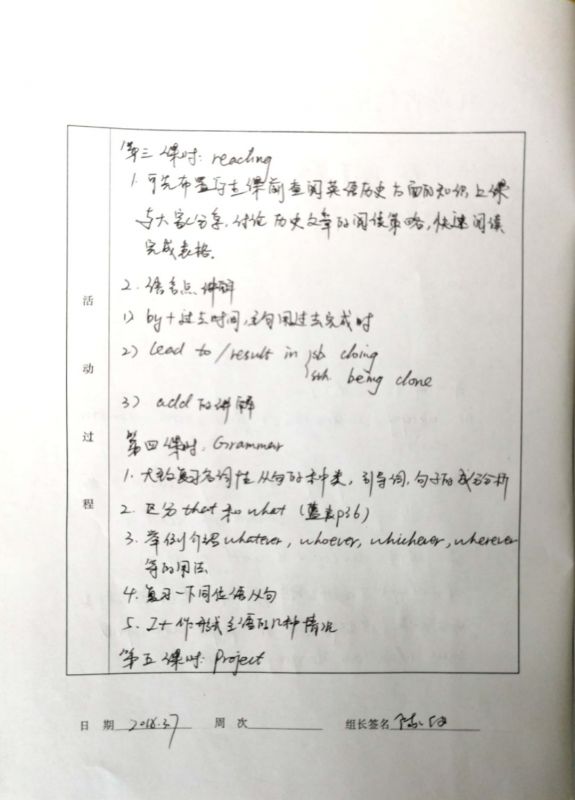 第三课时: reading
1. 可先布置学生课前查阅英语历史方面的知识,上课
与大家分享,讨论历史文章的阅读策略,快速阅读
完成表格.
2. 语言点讲解
1) by+过去时间,主句用过去完成时
2) lead to/result in { sb. doing
sth. being done
3) add的讲解
第四课时: Grammar
1. 大致复习名词性从句的种类,引导词,句子的成分分析
2. 区分 that 和 what ( p36)
3. 举例介绍 whatever, whoever, whichever, wherever
等的用法
4. 复习一下同位语从句
5. It 作形式主语的几种情况
第五课时: Project
活动过程
日期 2018.3.7 周次 组长签名